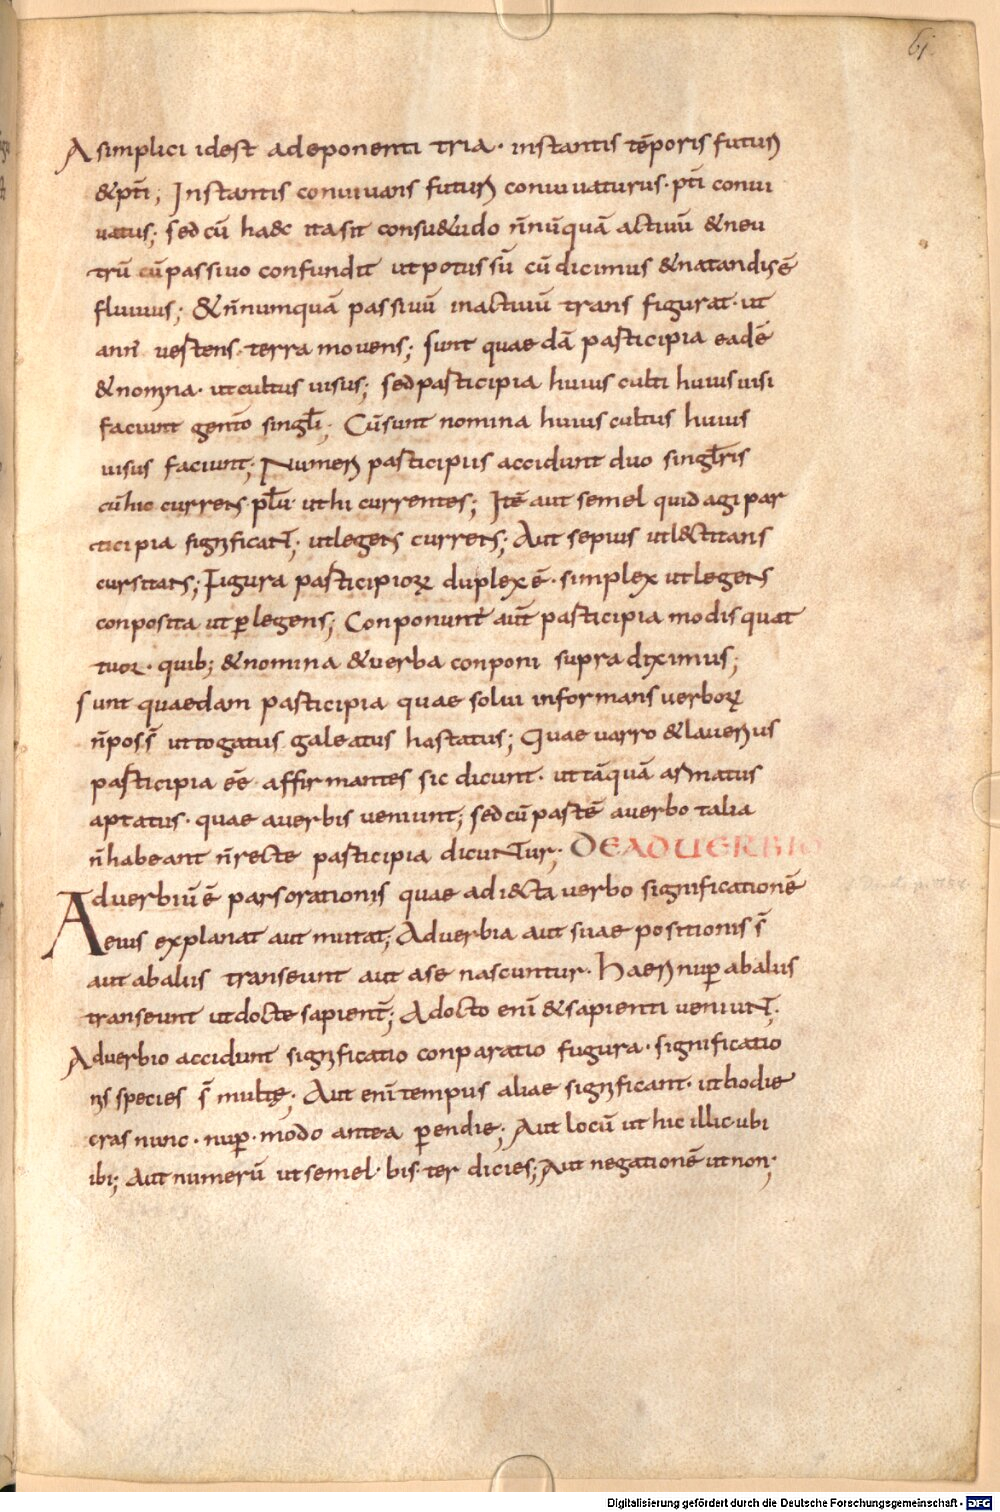 61
A simplici idest adeponenti tria· instantis tēporis futuri
&pti; Instantis conuiuans futuri conuiuaturus· pti conui
uatus; sed cū haec itasit consu&udo n̄nūquā actiuū &neu
trū cūpassiuo confundit utpotus sū cū dicimus &natandis ē
fluuius; &n̄numquā passiuū inactiuū trans figurat· ut
anni uestens· terra mouens; sunt quaedā participia eadē
&nomina· utcultus uisus; sedparticipia huius culti huiusuisi
faciunt genito singł; Cūsunt nomina huius cultus huius
uisus faciunt; Numeri participiis accidunt duo singłris
cūhic currens· płu uthi currentes; Itē aut semel quid agi par
ticipia significant; utlegens currens; Aut sepius utl&titans
cursitans; Figura participiorꝝ duplex ē· simplex utlegens
conposita ut ꝑlegens; Conponunt aūt participia modis quat
tuor· quib; &nomina &uerba conponi supra diximus;
sunt quaedam participia quae solui informans uerborꝝ
n̄poss̄ uttogatus galeatus hastatus; Quae uarro &lauerius
participia eē affirmantes sic dicunt· uttāquā armatus
aptatus· quae auerbis ueniunt; sedcūpartē auerbo talia
n̄habeant n̄recte participia dicuntur; DEADUERBIO
Aduerbiū ē parsorationis quae adiecta uerbo significationē
eius explanat aut mutat; Aduerbia aut suae positionis s̄
aut abaliis transeunt aut ase nascuntur· Haeri nuꝑ abaliis
transeunt utdocte sapient̄; Adocto eni &sapienti ueniunt;
Aduerbio accidunt significatio conparatio fugura· significatio
nis species s̄ multę; Aut eni tempus aliae significant· uthodie
cras nunc· nuꝑ· modo antea ꝑendie; Aut locū ut hic illic ubi
ibi; Aut numerū utsemel· bis· ter dicies; Aut negationē utnon;
Digitalisierung gefördert durch die Deutsche Forschungsgemeinschaft - DFG